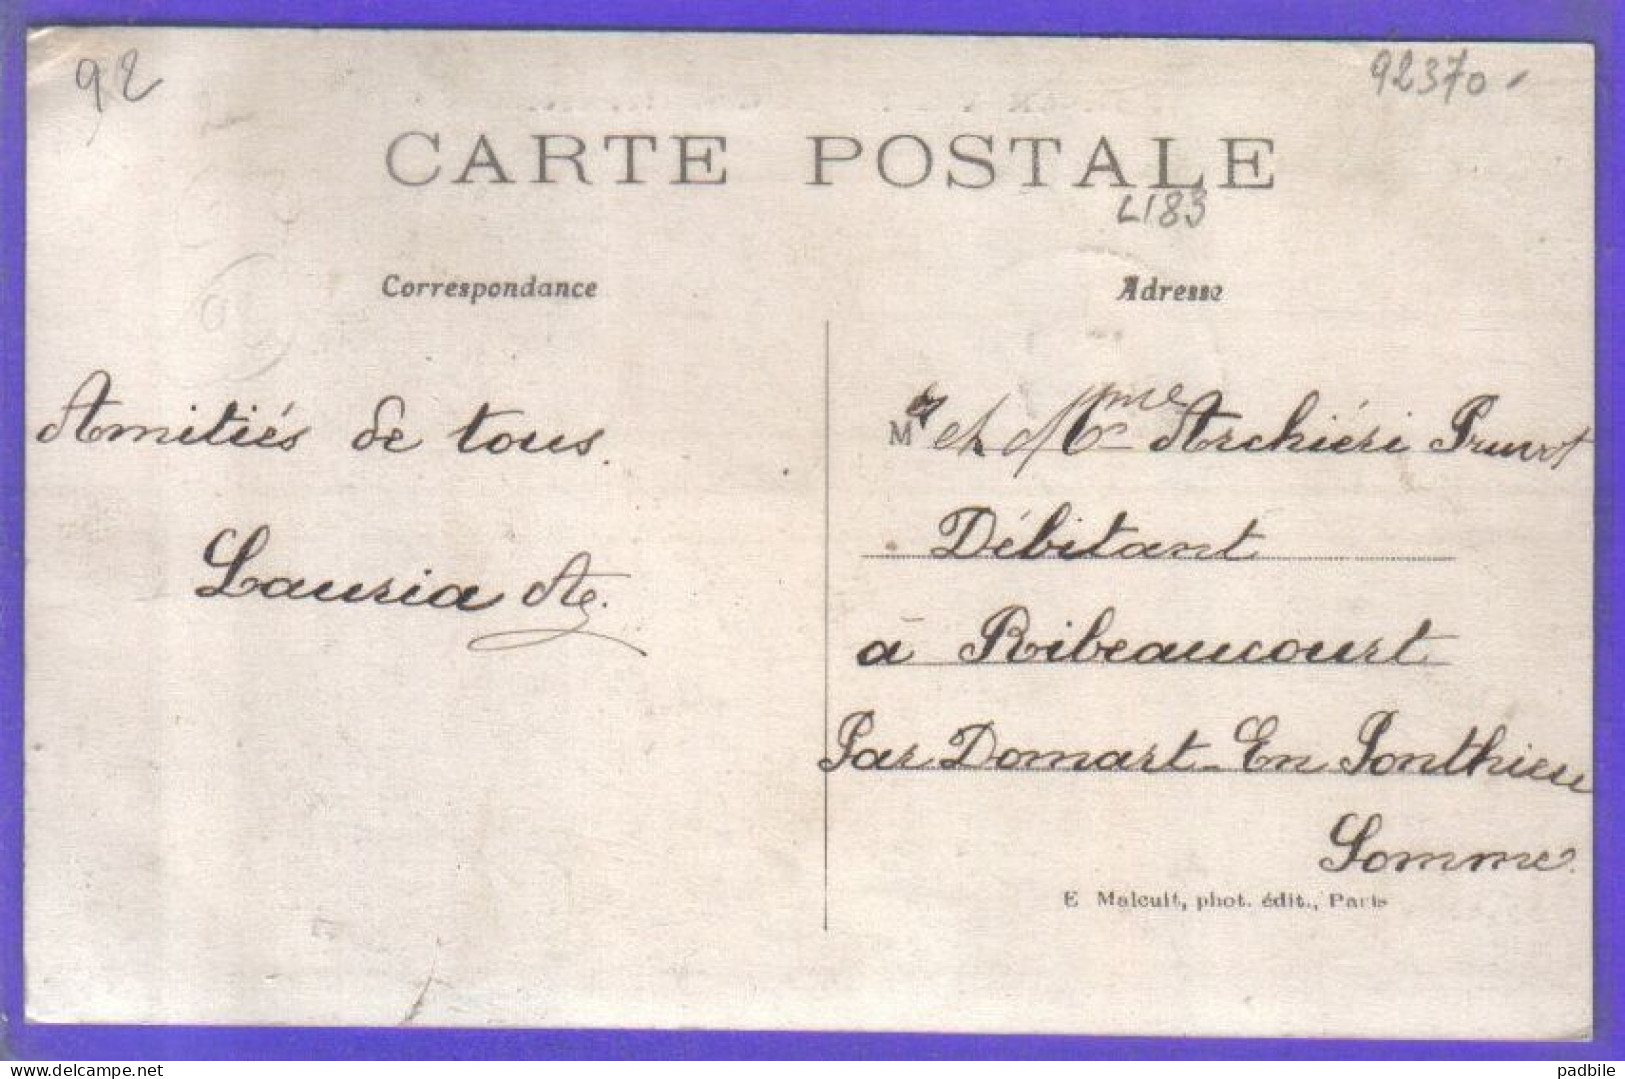 92
92370
CARTE POSTALE
L183
Correspondance
Adresse
Amitiés de tous.
Mr et Mme Archiéri Pruvot
Débitant
Lauria
à Ribeaucourt
Par Domart-En Ponthieu
Somme.
E Malcuit, phot. édit., Paris
padbile